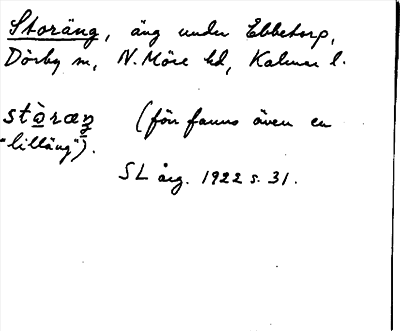 Storäng, äng under Ebbetorp,
Dörby sn, N. Möre hd, Kalmar l.
stòraŋ (förr fanns även en
"lilläng").
SL årg. 1922 s. 31.